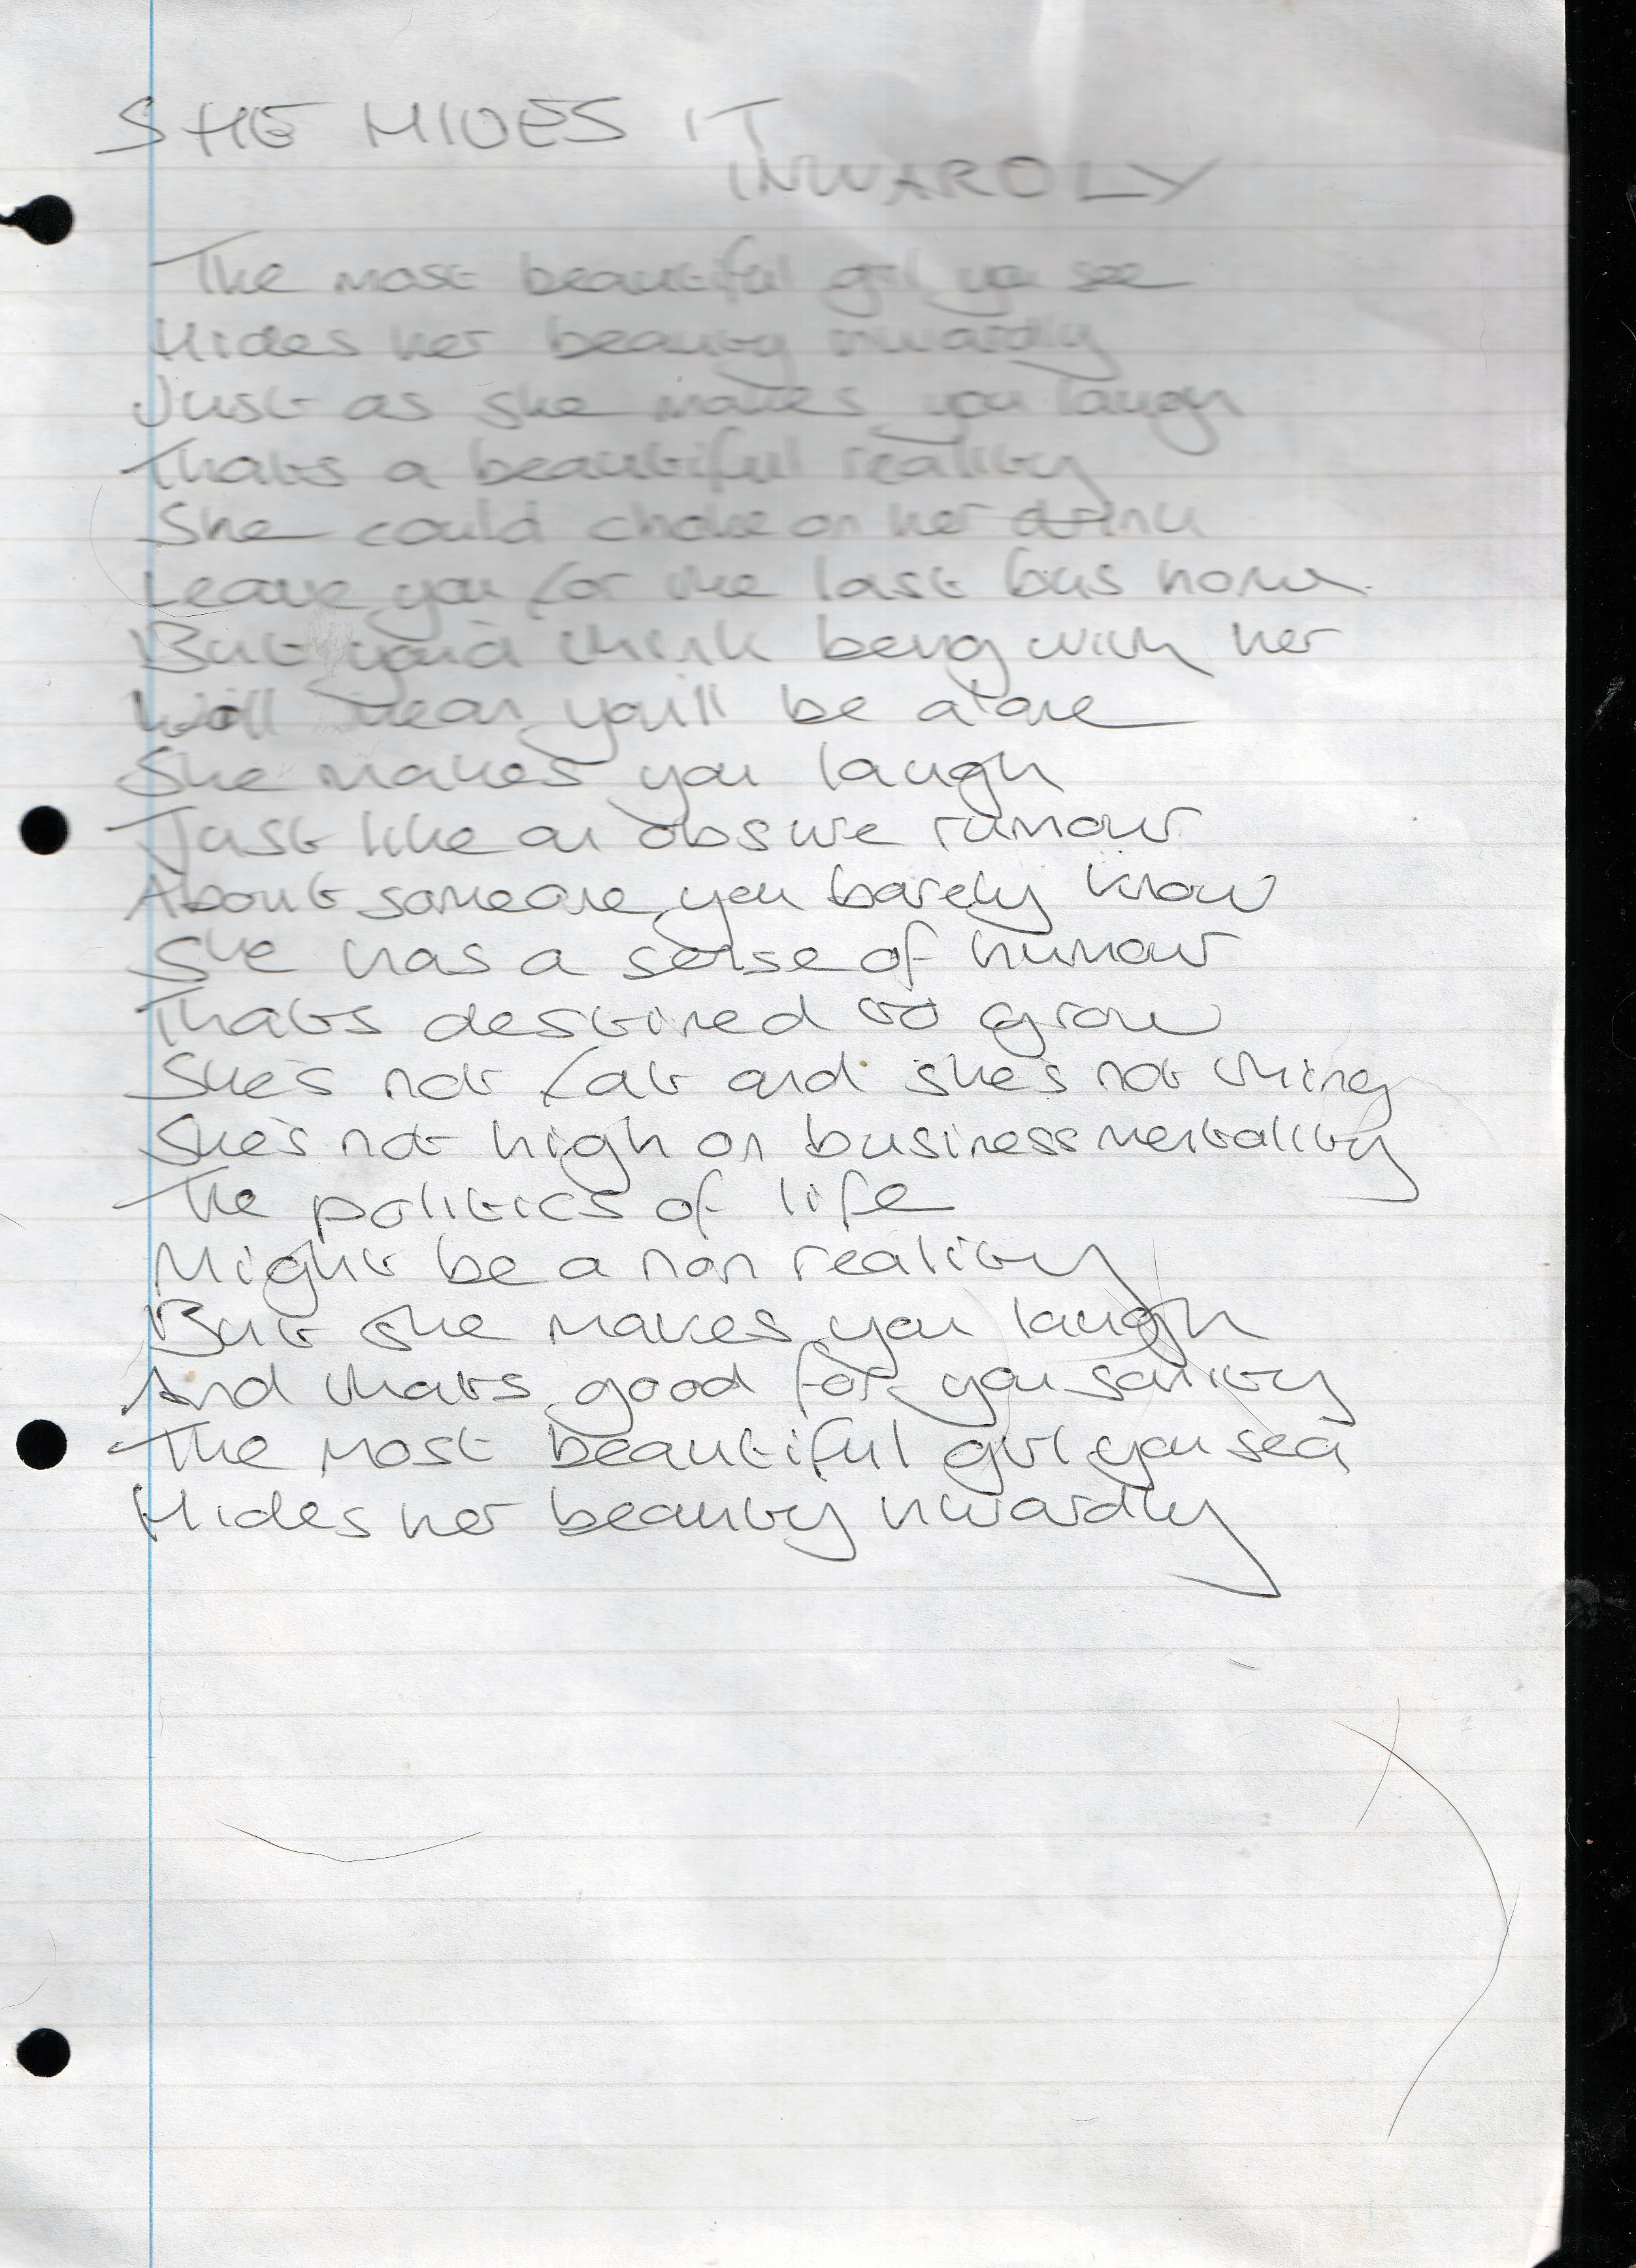 SHE HIDES IT
INWARDLY
The most beautiful girl you see
Hides her beauty inwardly
Just as she makes you laugh
Thats a beautiful reality
She could choke on her drink
Leave you for the last bus home
But you'd think being with her
Will mean you'll be alone
She makes you laugh
Just like an obscure rumour
About someone you barely know
She has a sense of humour
Thats destined to grow
She's not fat and she's not thing
She's not high on business mentality
The politics of life
Might be a non reality
But she makes you laugh
And thats good for you sanity
The most beautiful girl you see
Hides her beauty inwardly